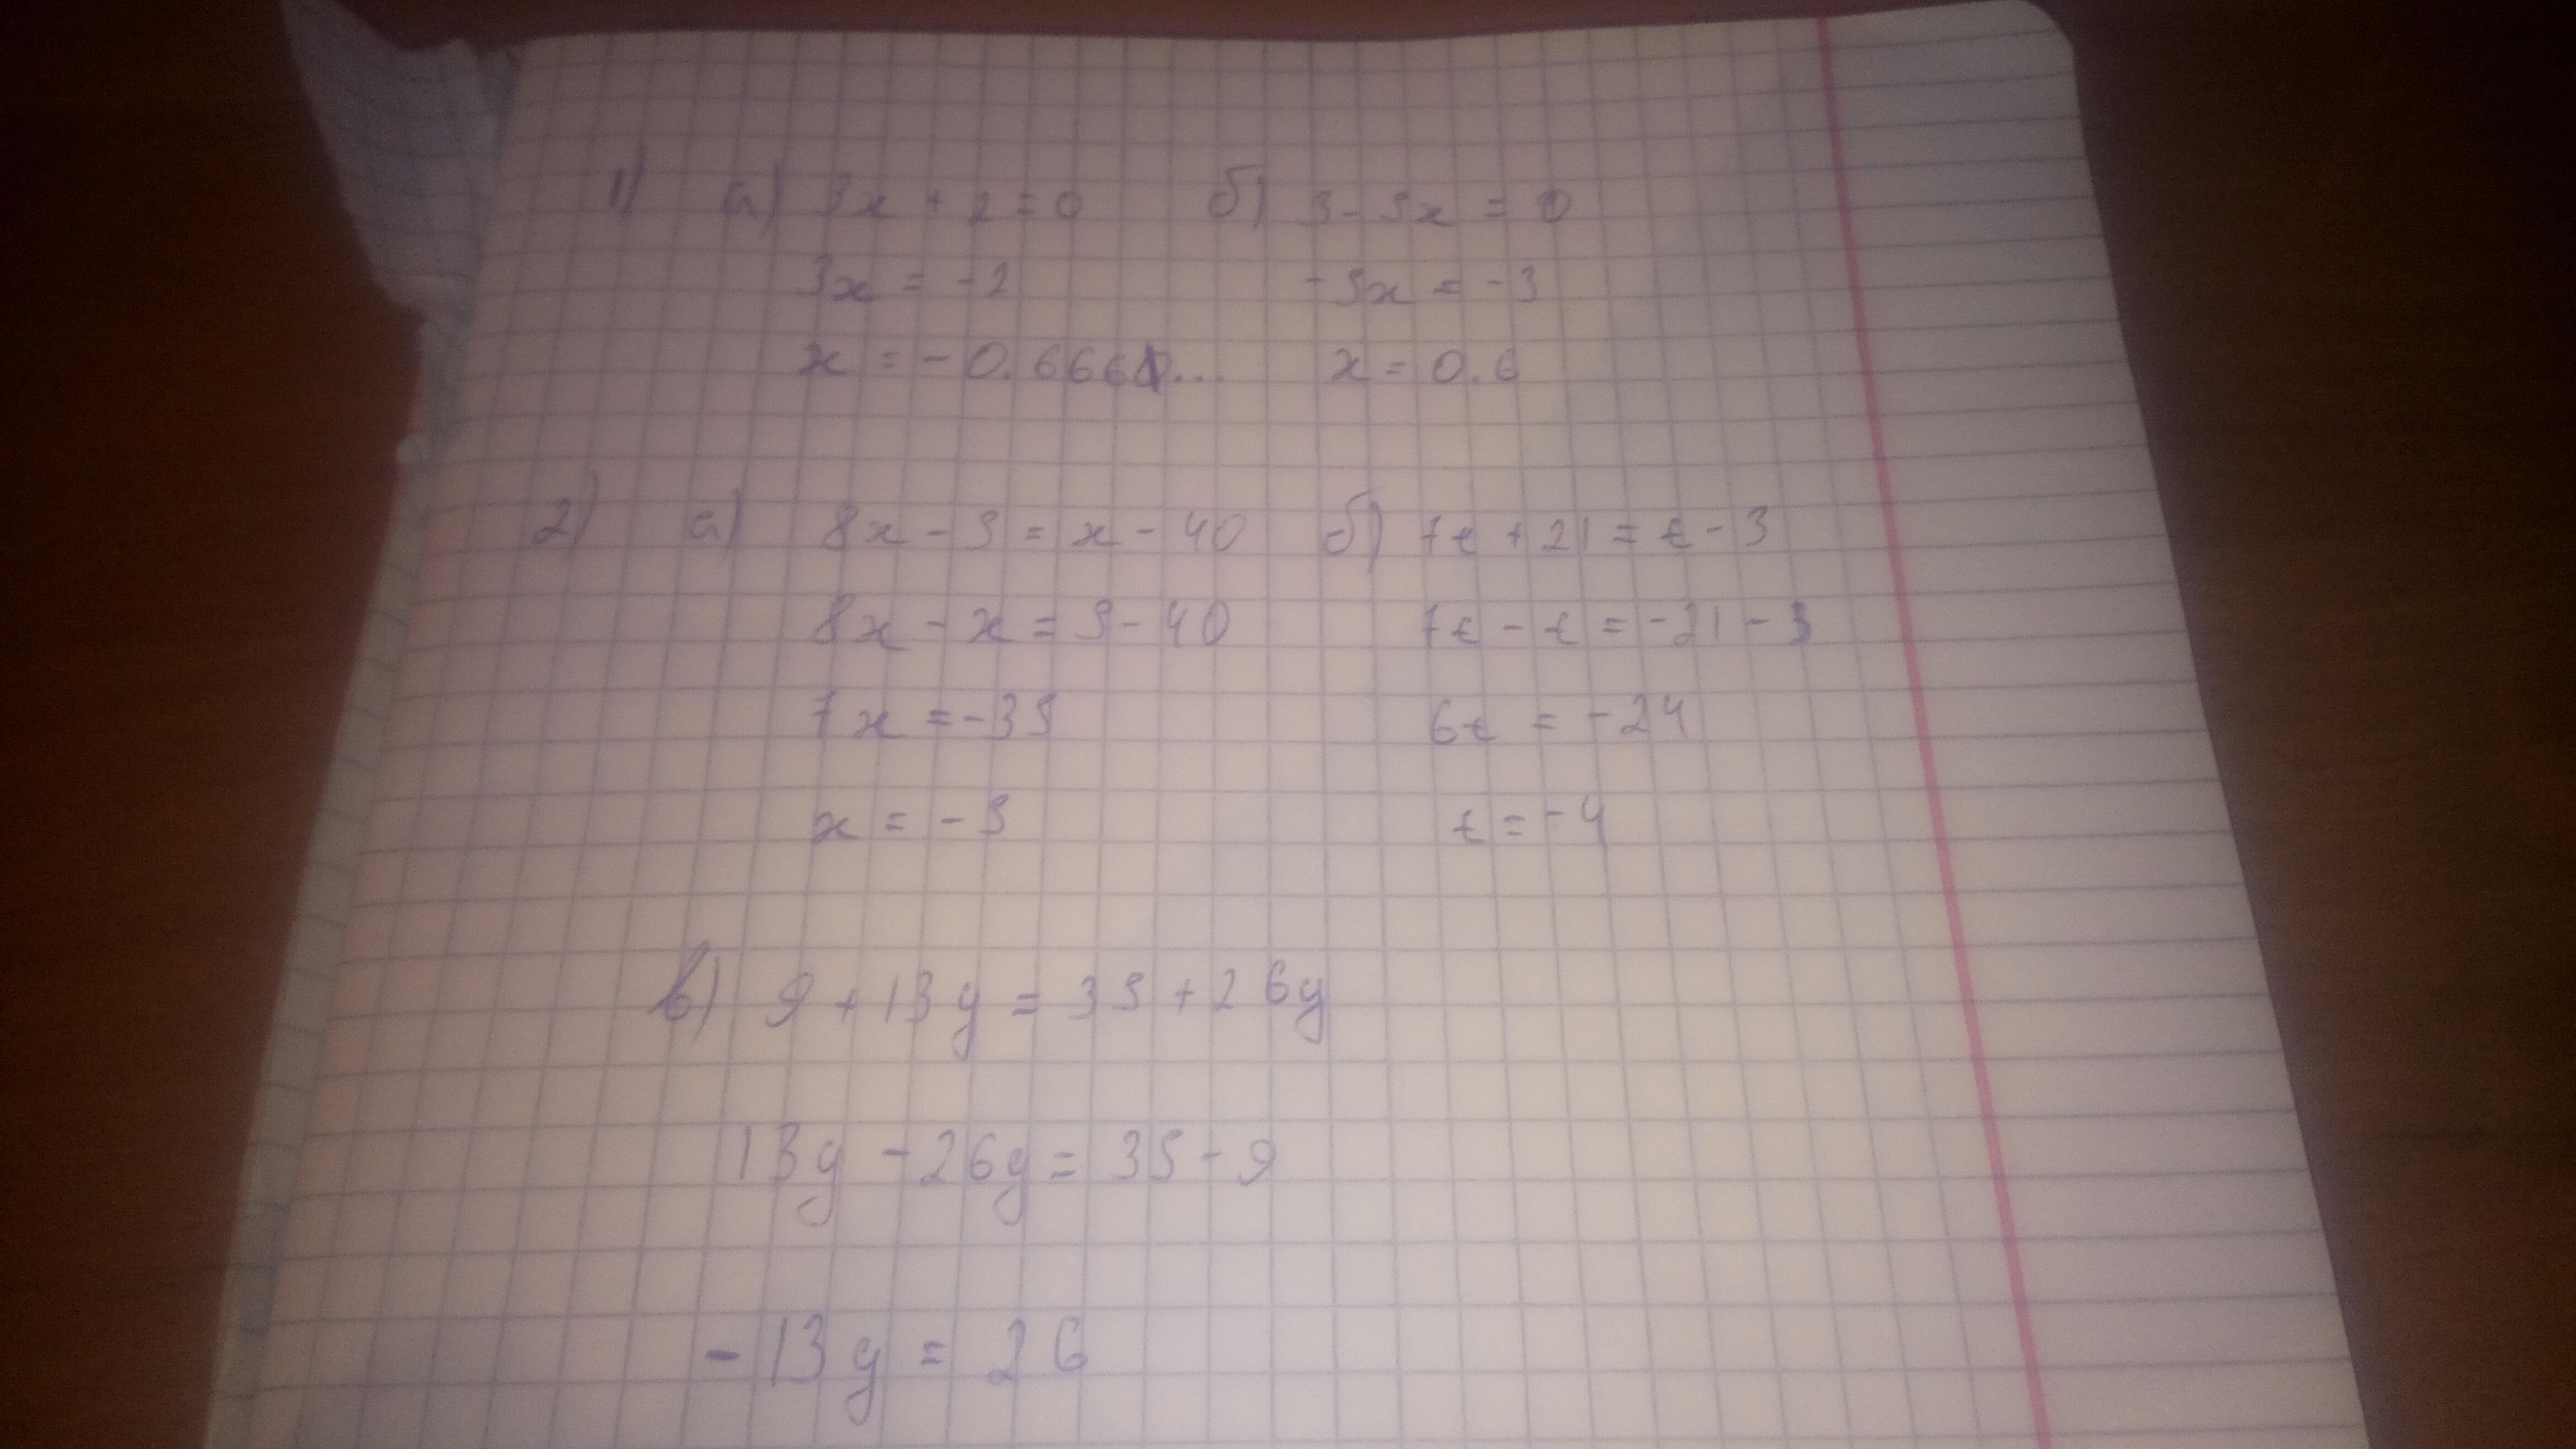 1) а) 3x + 2 = 0 б) 3 - 5x = 0
3x = -2 -5x = -3
x = -0.666... x = 0.6
2) а) 8x - 5 = x - 40 б) 7t + 21 = t - 3
8x - x = 5 - 40 7t - t = -21 - 3
7x = -35 6t = -24
x = -5 t = -4
в) 9 + 13y = 35 + 26y
13y - 26y = 35 - 9
-13y = 26